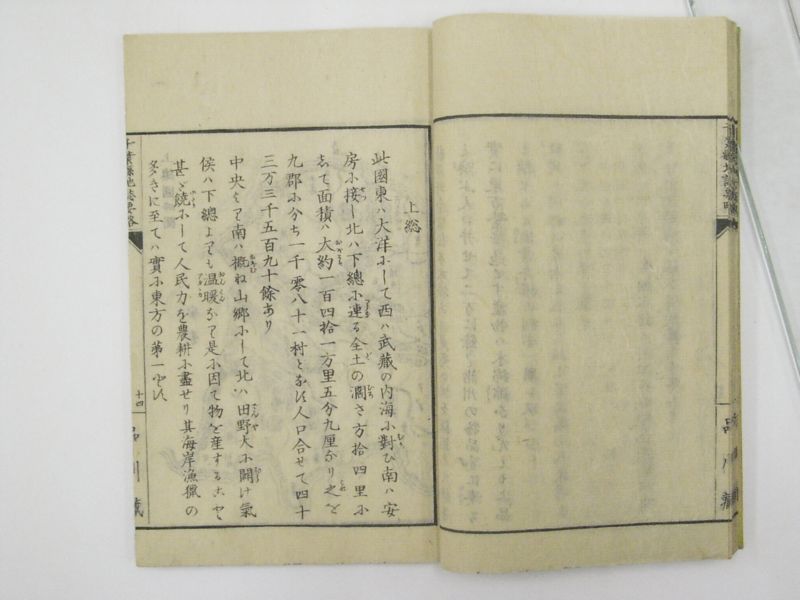 千葉縣地誌要略
上総
此國東ハ大洋ふして西ハ武藏の内海ふ對ひ南ハ安
房ふ接し北ハ下總ふ連る全土の濶さ方拾四里ふ
して面積ハ大約一百四拾一方里五分九厘なり之を
九郡ふ分ち一千零八十一村となす人口合せて四十
三万三千五百九十餘あり
中央より南ハ概ね山郷ふして北ハ田野大ふ開け氣
候ハ下總よりも温暖なり是ふ因て物を産すること
甚饒ふして人民力を農耕ふ盡せり其海岸漁獵の
多きに至てハ實ふ東方の第一とす
十四